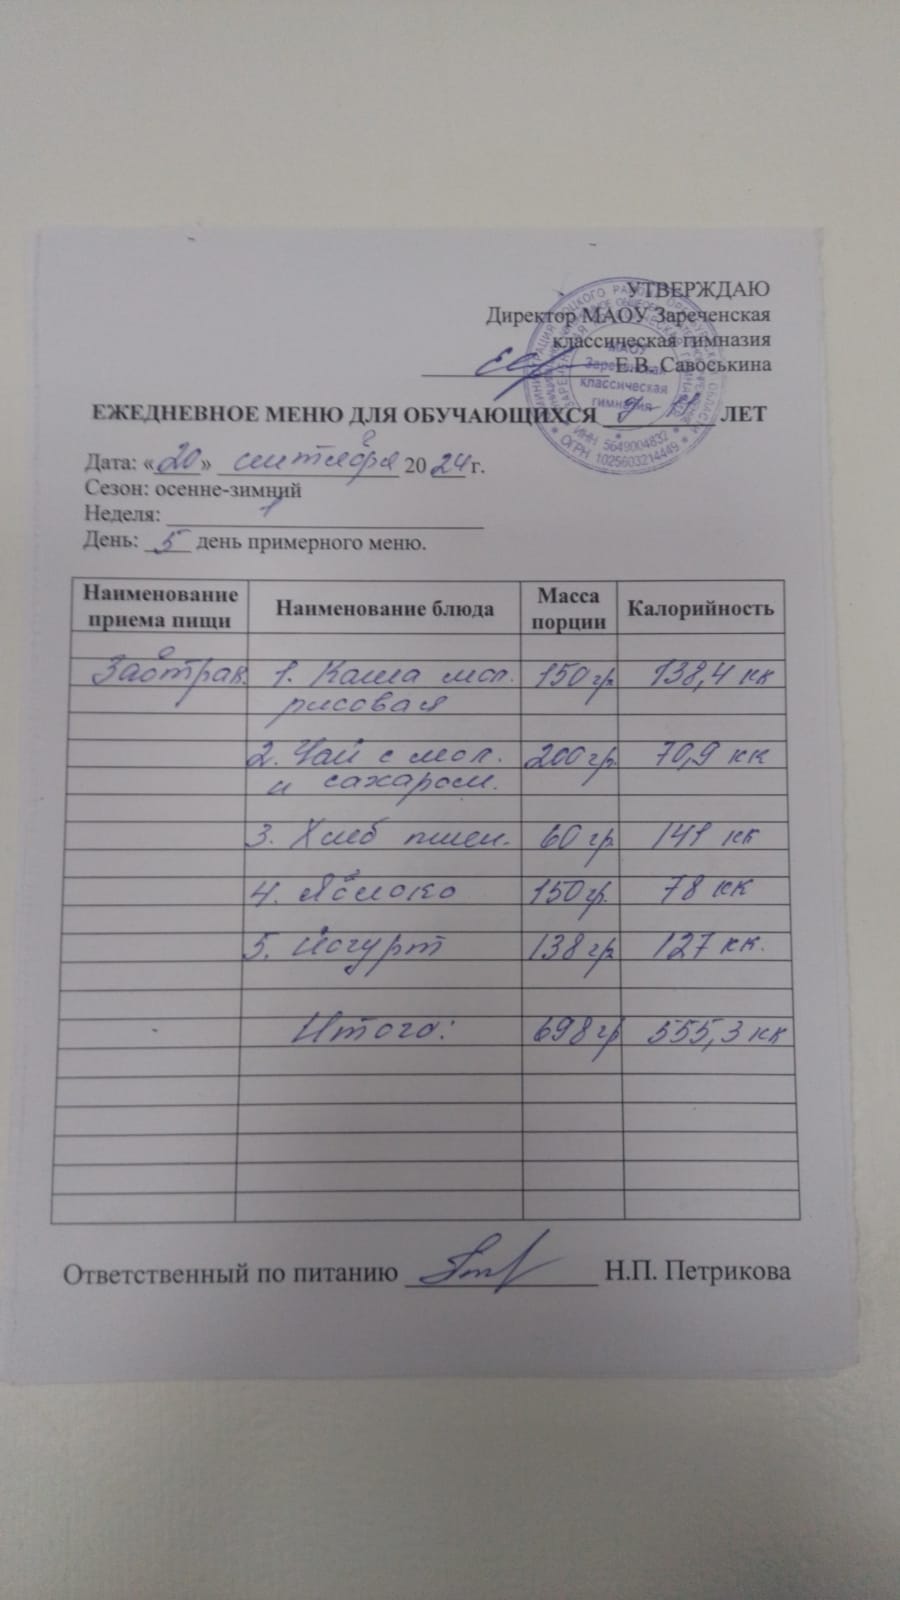 УТВЕРЖДАЮ
Директор МАОУ Зареченская
классическая гимназия
Е.В. Савоськина
МАОУ
Зареченская
классическая
гимназия
ИНН 5649004832
ОГРН 1025603214449
ЕЖЕДНЕВНОЕ МЕНЮ ДЛЯ ОБУЧАЮЩИХСЯ ЛЕТ
Дата: «20» сентября 2024 г.
Сезон: осенне-зимний
Неделя: 1
День: 5 день примерного меню.
Наименование приема пищи Наименование блюда Масса порции Калорийность
Завтрак. 1. Каша мол. 150 гр 138,4 кк
рисовая
2. Чай с мол. 200 гр. 70,9 кк
и сахаром.
3. Хлеб пшен. 60 гр. 141 кк
4. Яблоко 150 гр. 78 кк
5. Йогурт 138 гр 127 кк.
Итого: 698 гр 555,3 кк
Ответственный по питанию Н.П. Петрикова